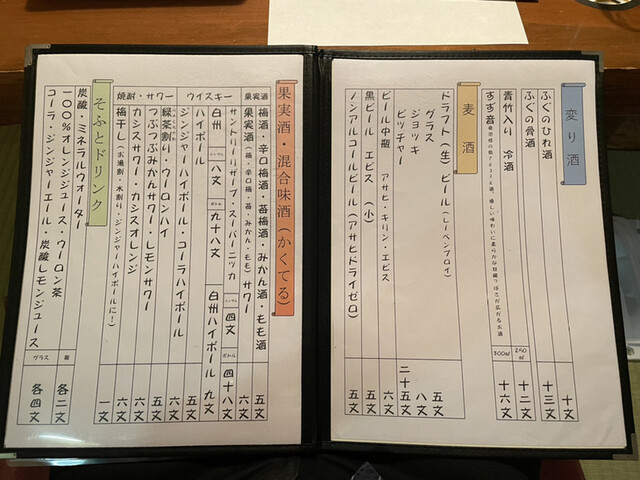 変り酒
ふぐのひれ酒 十文
ふぐの骨酒 十三文
青竹入り 冷酒 250ml 十二文
300ml 十六文
すず音
麦酒
ドラフト(生)ビール(レーベンブロイ)
グラス 五文
ジョッキ 八文
ピッチャー 二十五文
ビール中瓶 アサヒ・キリン・エビス 六文
黒ビール エビス (小) 五文
ノンアルコールビール(アサヒドライゼロ) 五文
果実酒・混合味酒(かくてる)
果実酒
梅酒・辛口梅酒・苺梅酒・みかん酒・もも酒 五文
果実酒(梅・辛口梅・苺・みかん・もも)サワー 六文
ウイスキー
サントリーリザーブ・スーパーニッカ シングル 四文 ボトル 四十八文
白州 シングル 八文 ボトル 九十八文 白州ハイボール 九文
ハイボール 五文
ジンジャーハイボール・コーラハイボール 六文
焼酎・サワー
緑茶割り・ウーロンハイ 五文
つぶつぶみかんサワー・レモンサワー 六文
カシスサワー・カシスオレンジ 六文
梅干し(お湯割り・水割り・ジンジャーハイボールに!) 一文
そふとドリンク
炭酸・ミネラルウォーター
一〇〇%オレンジジュース・ウーロン茶 各二文
コーラ・ジンジャーエール・炭酸レモンジュース グラス 各四文